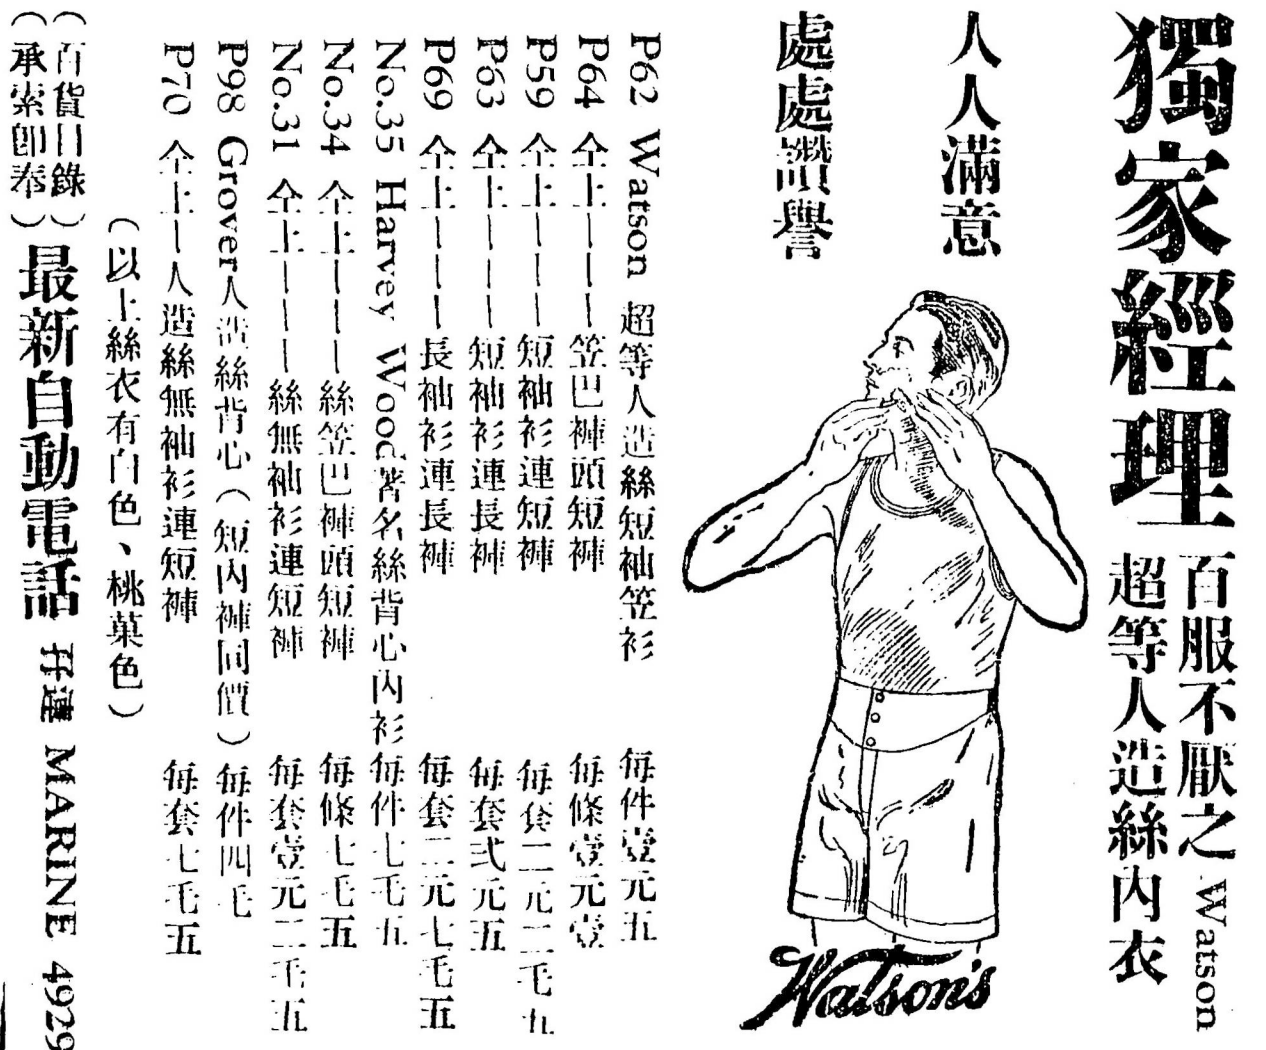 獨家經理
百服不厭之 Watson
超等人造絲內衣
人人滿意
處處讚譽
Watson's
P62 Watson 超等人造絲短袖笠衫 每件壹元五
P64 仝上———笠巴褲頭短褲 每條壹元壹
P59 仝上———短袖衫連短褲 每套二元二毛九
P63 仝上———短袖衫連長褲 每套弍元五
P69 仝上———長袖衫連長褲 每套二元七毛五
No.35 Harvey Wood著名絲背心內衫 每件七毛五
No.34 仝上———絲笠巴褲頭短褲 每條七毛五
No.31 仝上———絲無袖衫連短褲 每套壹元二毛五
P98 Grover人造絲背心（短內褲同價） 每件四毛
P70 仝上—人造絲無袖衫連短褲 每套七毛五
（以上絲衣有白色、桃菓色）
（百貨目錄）
（承索即奉）
最新自動電話 MARINE 4929